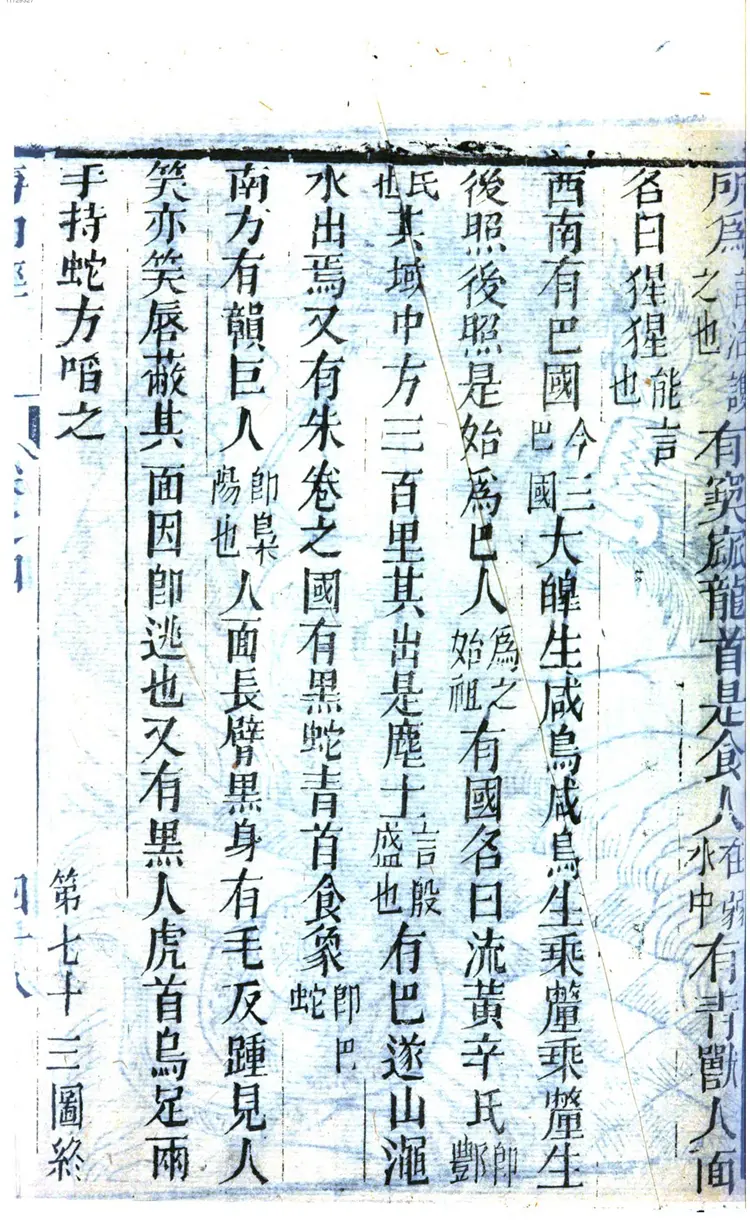 所爲言治護之也有窫窳龍首是食人在弱水中有青獸人面
名曰猩猩能言也
西南有巴國今三巴國大皥生咸鳥咸鳥生乘釐乘釐生
後照後照是始爲巴人爲之始祖有國名曰流黃辛氏即酆
氏也其域中方三百里其出是塵土言殷盛也有巴遂山澠
水出焉又有朱卷之國有黑蛇青首食象即巴蛇
南方有贑巨人即梟陽也人面長臂黑身有毛反踵見人
笑亦笑唇蔽其面因即逃也又有黑人虎首鳥足兩
手持蛇方啗之
第七十三圖終